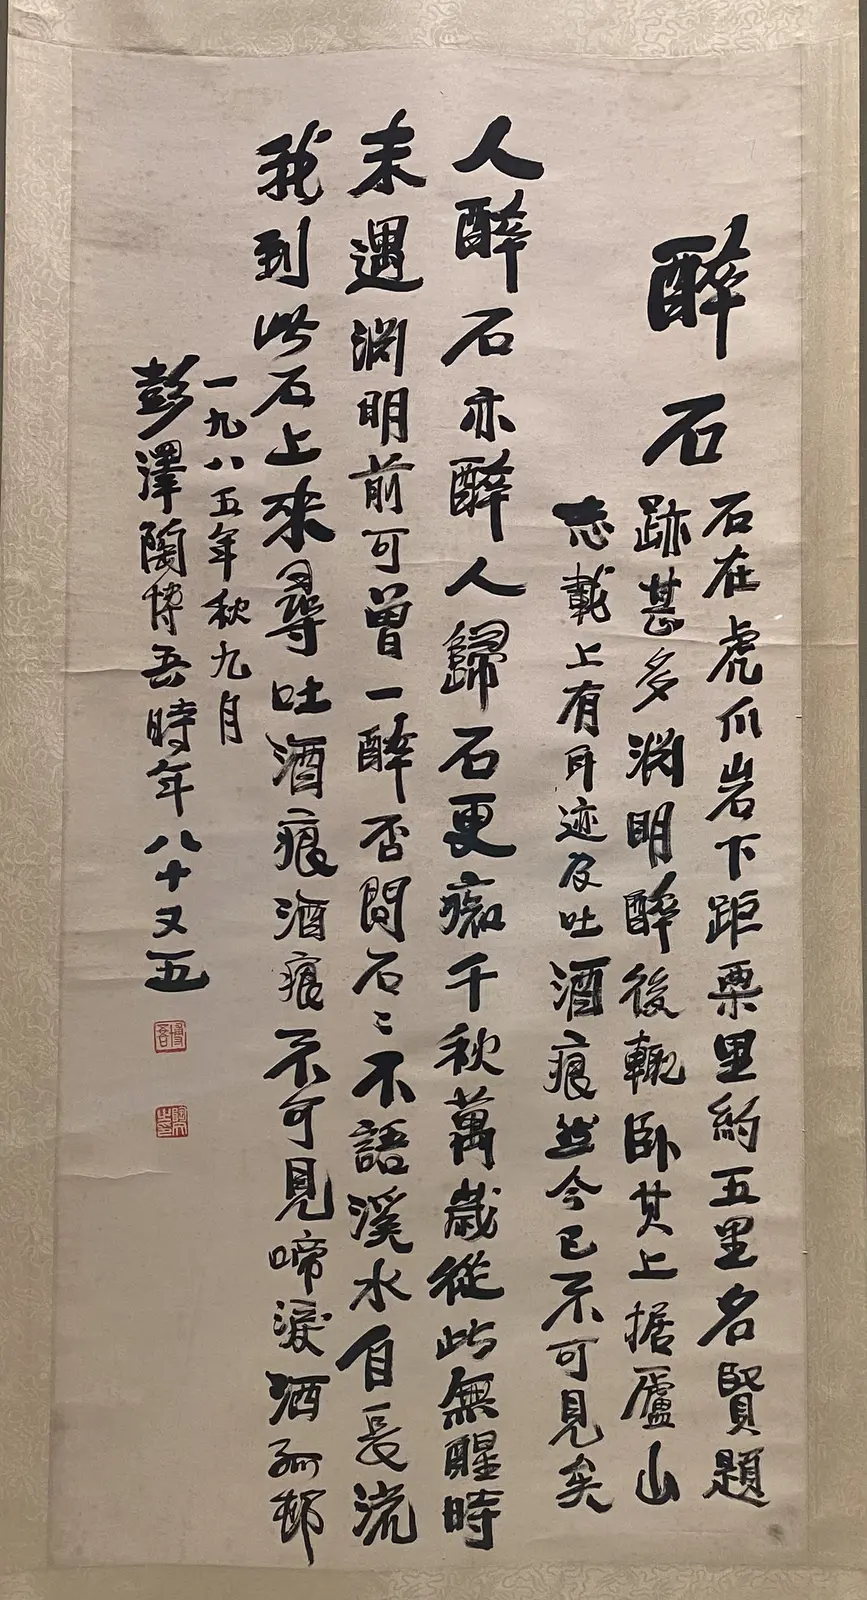 醉石
石在虎爪岩下距栗里約五里名賢題
跡甚多淵明醉後輒卧其上据廬山
志載上有耳迹及吐酒痕然今已不可見矣
人醉石亦醉人歸石更痴千秋萬歲從此無醒時
未遇淵明前可曾一醉否問石々不語溪水自長流
我到此石上來尋吐酒痕酒痕不可見啼淚洒孤邨
一九八五年秋九月
彭澤陶博吾時年八十又五
博吾